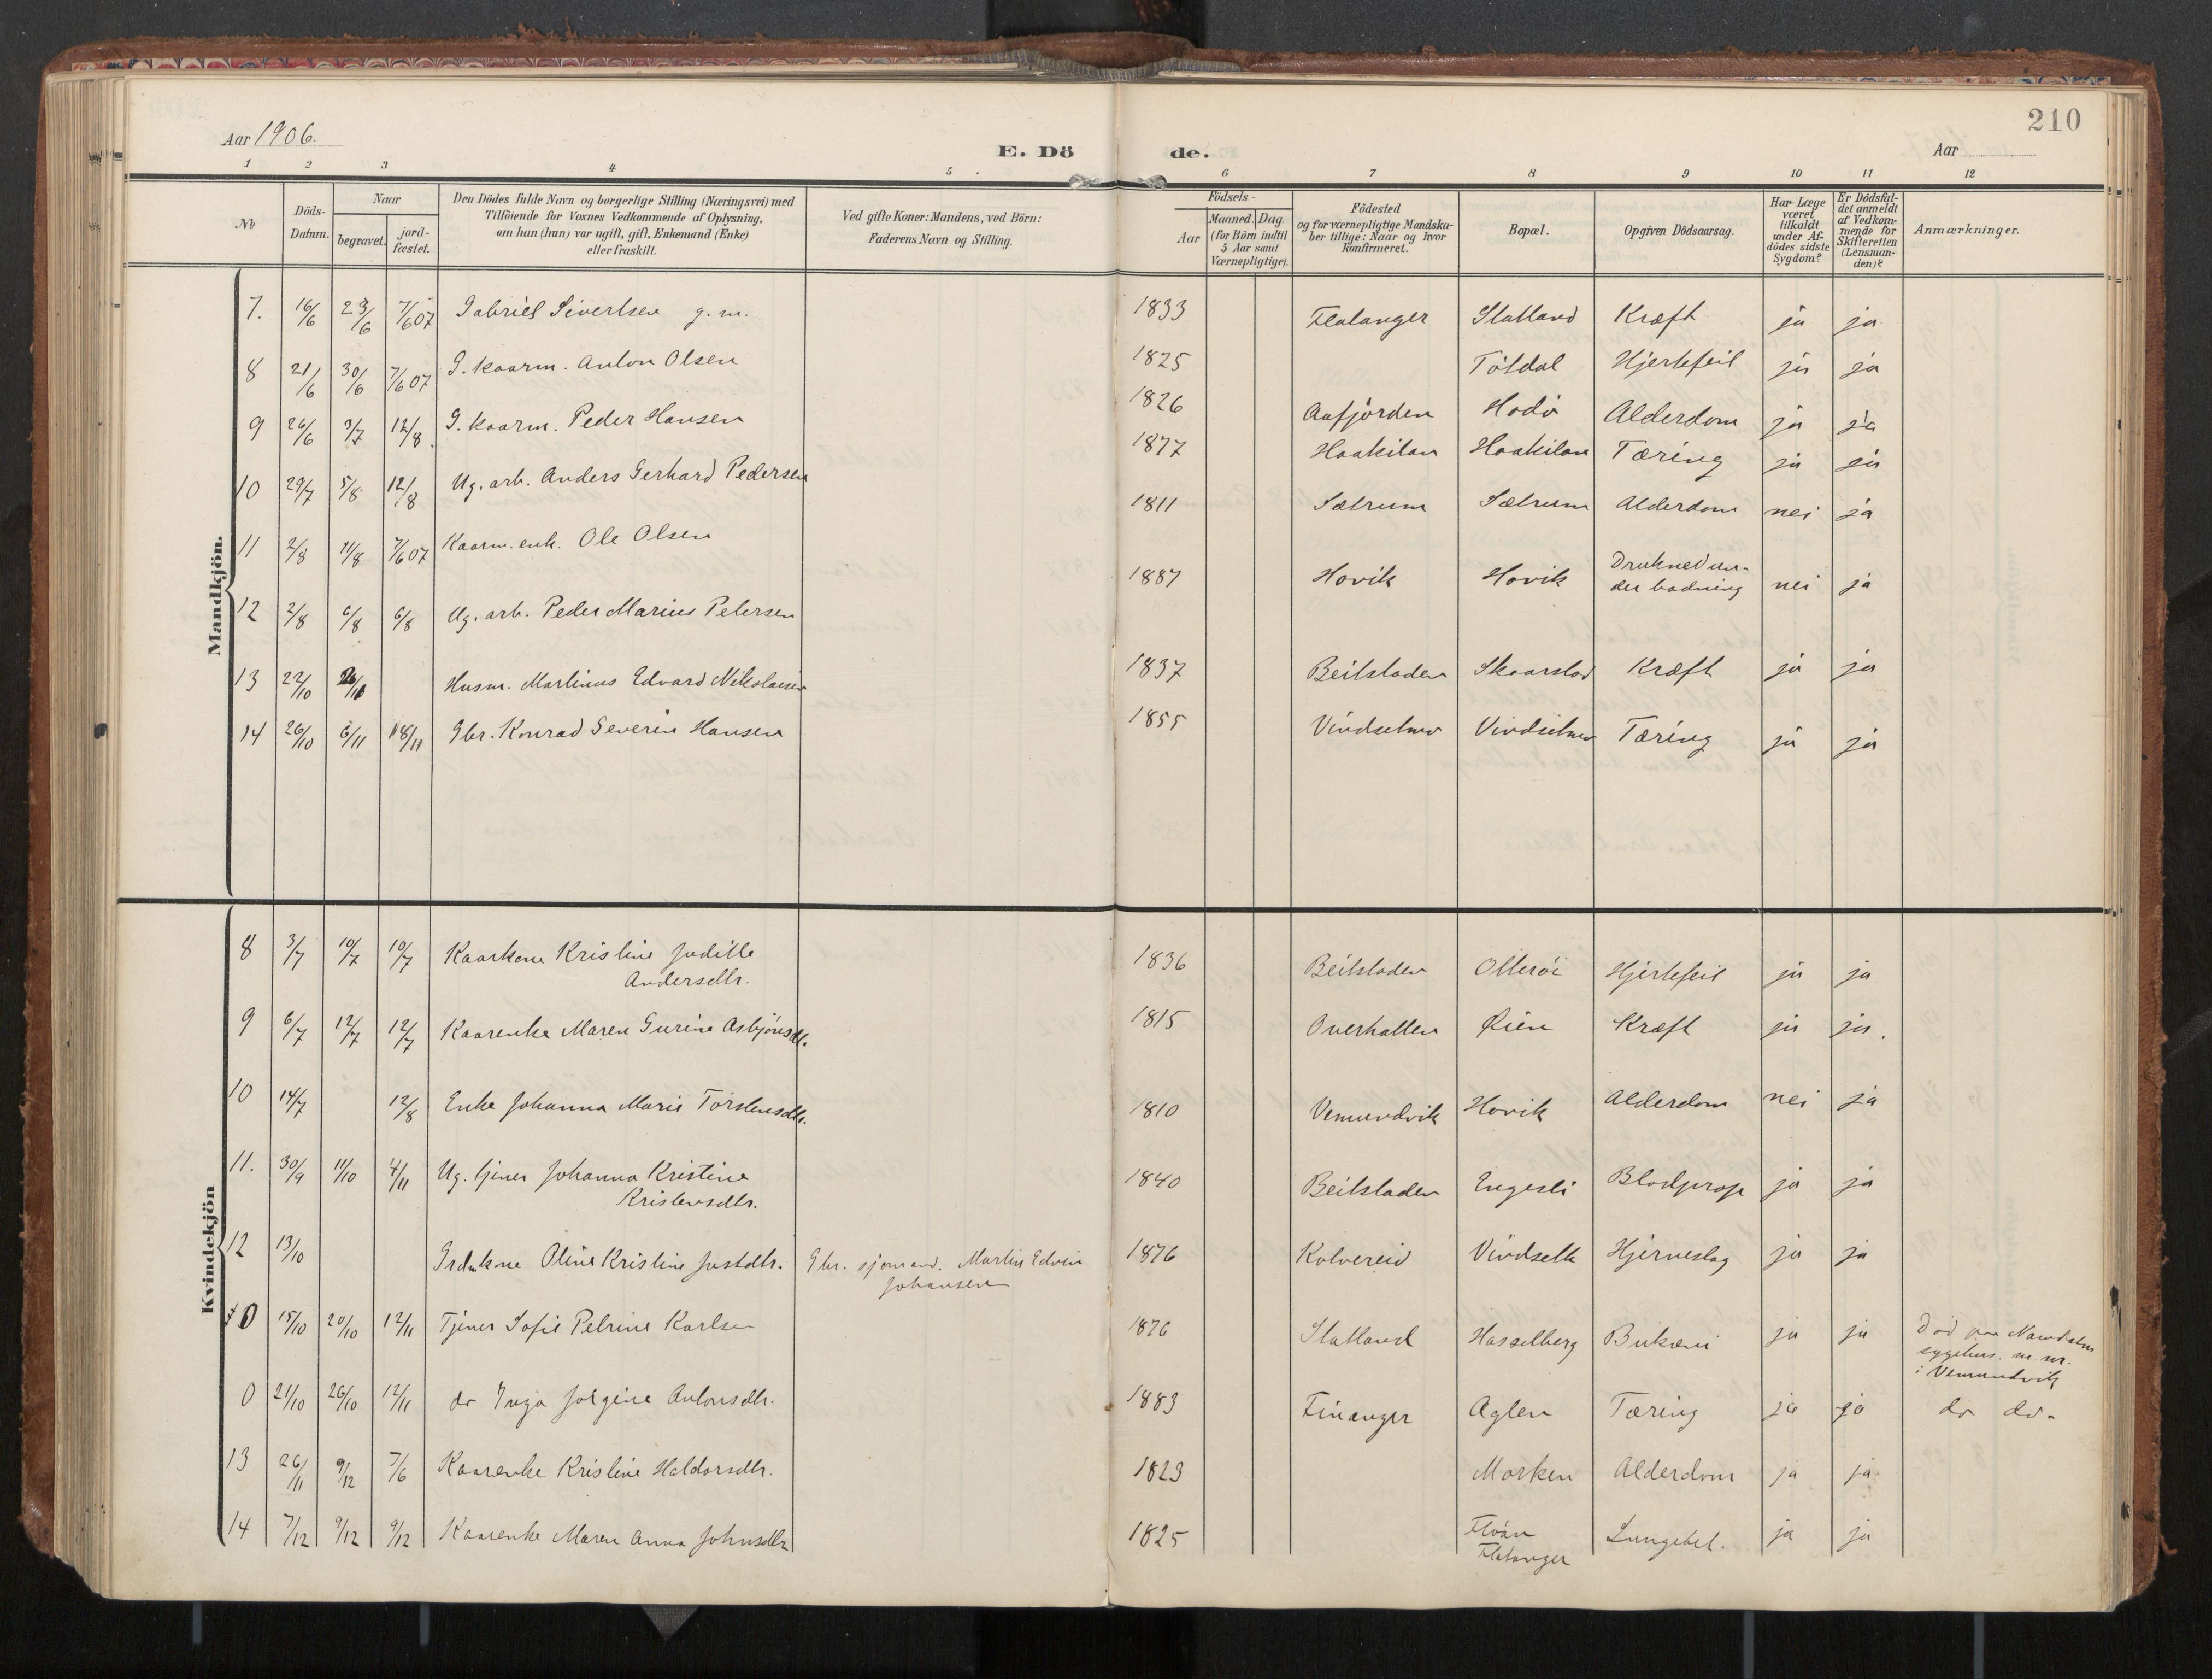 210
Aar 1906.
E. Döde.
Aar
1 2 3 4 5 6 7 8 9 10 11 12
№
Döds-Datum.
Naar
begravet.
jord-fæstet.
Den Dödes fulde Navn og borgerlige Stilling (Næringsvei) med
Tilföiende for Voxnes Vedkommende af Oplysning,
om han (hun) var ugift, gift, Enkemand (Enke)
eller fraskilt.
Ved gifte Koner: Mandens, ved Börn:
Faderens Navn og Stilling.
Födsels-
Aar
Maaned. Dag.
(for Börn indtil
5 Aar samt
Værnepligtige).
Födested
og for værnepligtige Mandska-
ber tillige: Naar og hvor
konfirmeret.
Bopæl.
Opgiven Dödsaarsag.
Har Læge
været
tilkaldt
under Af-
dödes sidste
Sygdom?
Er Dödsfal-
det anmeldt
af Vedkom-
mende for
Skifteretten
(Lensman-
den)?
Anmærkninger.
Mandkjön.
7. 16/6 23/6 7/6 07 Gabriel Sivertsen g. m. 1833 Flatanger Statland Kræft ja ja
8 21/6 30/6 7/6 07 G. kaarm. Anton Olsen 1825 Tötdal Hjertefeil ja ja
9 26/6 3/7 12/8 G. kaarm. Peder Hansen 1826 Aafjorden Hodö Alderdom ja ja
10 29/7 5/8 12/8 Ug. arb. Anders Gerhard Pedersen 1877 Haakilan Haakilan Tæring ja ja
11 2/8 11/8 7/6 07 Kaarm. enk. Ole Olsen 1811 Sætrum Sætrum Alderdom nei ja
12 2/8 6/8 6/8 Ug. arb. Peder Marius Petersen 1887 Hovik Hovik Druknedun-
der badning nei ja
13 22/10 Husm. Martinus Edvard Nikolaisen 1837 Beitstaden Skaarstad Kræft ja ja
14 26/10 6/11 18/11 Gbr. Konrad Severin Hansen 1855 Tæring ja ja
Kvindekjön
8 3/7 10/7 10/7 Kaarkone Kristine Juditte
Andersdtr. 1836 Beitstaden Otteröi Hjertefeil ja ja
9 6/7 12/7 12/7 Kaarenke Maren Gurine Asbjörnsdt. 1815 Overhallen Öien Kræft ja ja.
10 14/7 12/8 Enke Johanna Marie Torstensdtr. 1810 Vemundvik Hovik Alderdom nei ja
11. 30/9 11/10 4/11 Ug. tjener Johanna Kristine
Kristensdtr. 1840 Beitstaden Engesli Blodprop ja ja
12 13/10 Oline Kristine Justdtr. Gbr. sjömand. Martin Edvin
Johansen 1876 Kolvereid Vindsetk Hjerneslag ja ja
0 15/10 20/10 12/11 Tjener Sofie Petrine Karlsen 1876 Statland Hasselberg ja ja Död paa Namdalens
sygehus. m. nr.
i Vemundvik
0 21/10 26/10 12/11 do Inga Jörgine Antonsdtr. 1883 Finanger Aglen Tæring ja ja do do-
13 26/11 9/12 7/6 Kaarenke Kristine Haldorsdtr. 1823 Morken Alderdom ja ja
14 7/12 9/12 9/12 Kaarenke Maren Anna Johnsdtr 1825 Flöan
Flatanger Lungebet. ja ja